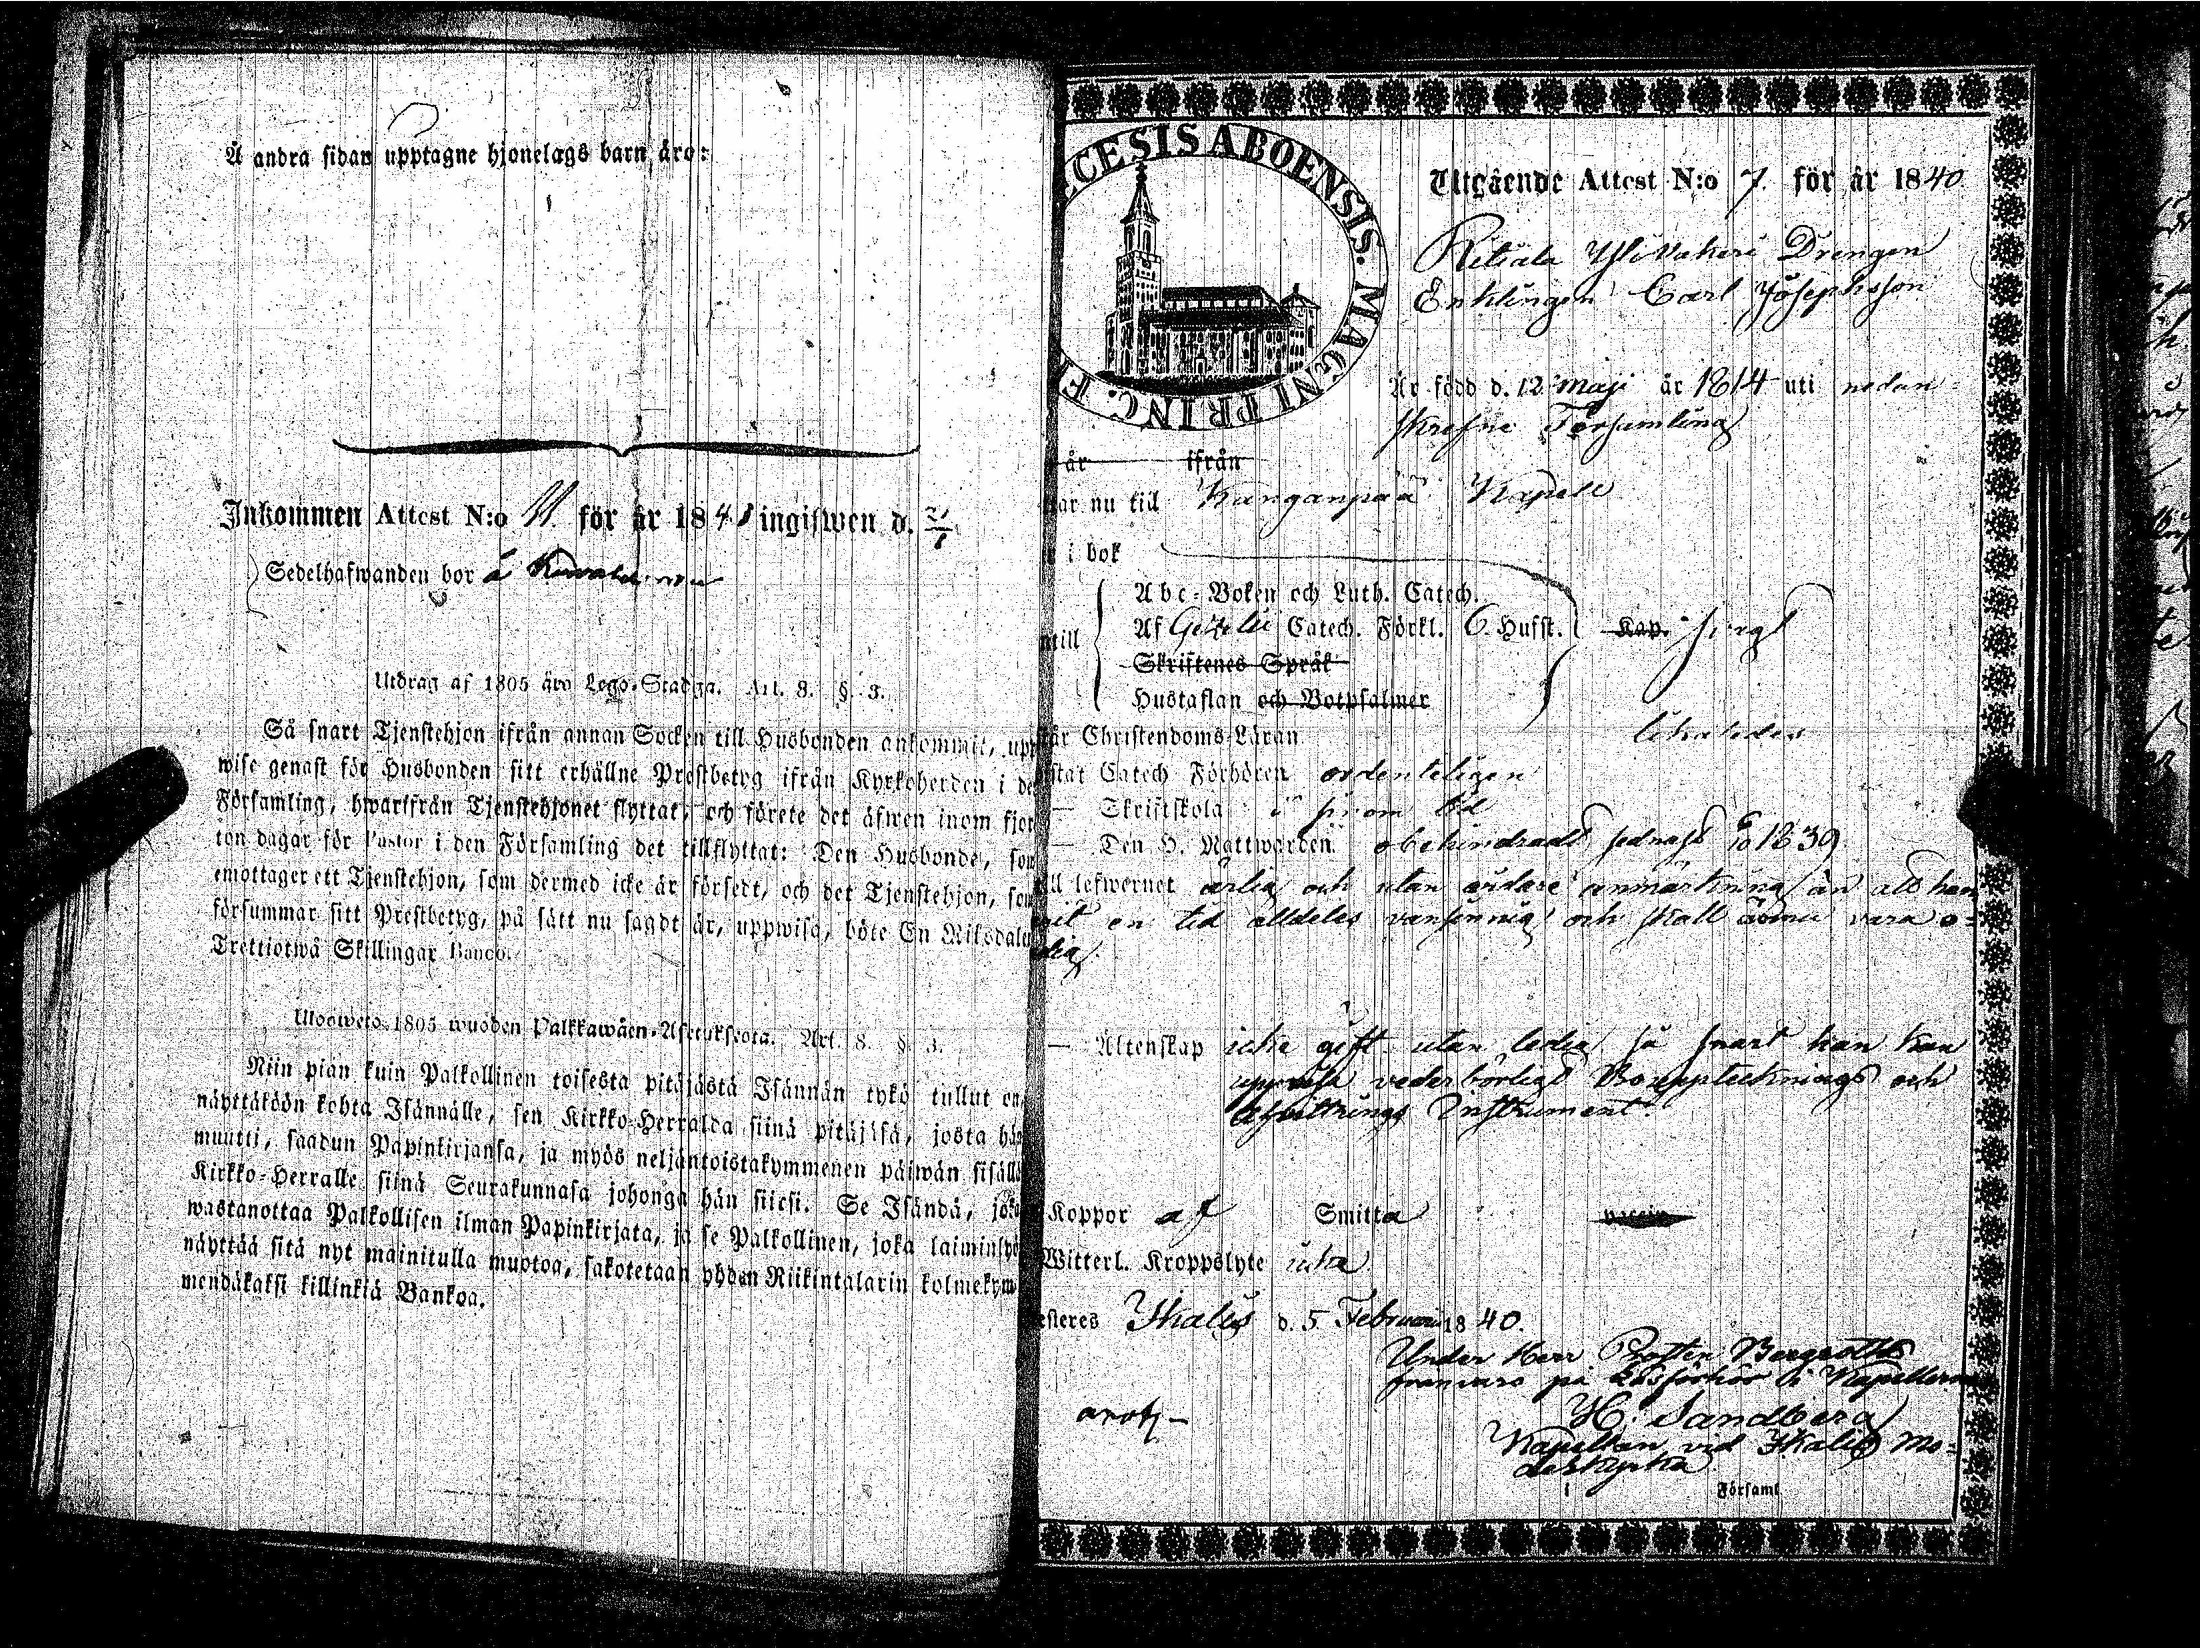 Å andra sidan upptagne hjonelags barn äro:
Inkommen Attest N:o 11 för år 1841 ingifwen d.
Sedelhafwanden bor å
Utdrag af 1805 års Lego-Stadga. Art. 8. § 3.
Så snart Tjenstehjon ifrån annan Socken till Husbonden ankommit, upp
wise genast för Husbonden sitt erhållne Prestbetyg ifrån Kyrkoherden i de
Församling, hwarifrån Tjenstehjonet flyttat, och förete det äfwen inom fjor
ton dagar för Pastor i den Församling det tillflyttat: Den Husbonde, som
emottager ett Tjenstehjon, som dermed icke är försedt, och det Tjenstehjon, som
försummar sitt Prestbetyg, på sätt nu sagdt är, uppwisa, böte En Riksdaler
Trettiotwå Skillingar Banco.
Ulosweto 1805 wuoden Palkkawäen-Asetuksesta. Art. 8. § 3.
Niin pian kuin Palkollinen toisesta pitäjästä Isännän tykö tullut on
näyttäköön kohta Isännälle, sen Kirkko-Herralda siinä pitäjäsä, josta hän
muutti, saadun Papinkirjansa, ja myös neljäntoistakymmenen päiwän sisällä
Kirkko-Herralle siinä Seurakunnasa johonga hän siirsi. Se Isändä, joka
wastanottaa Palkollisen ilman Papinkirjata, ja se Palkollinen, joka laiminlyö
näyttää sitä nyt mainitulla muotoa, sakotetaan yhden Riikintalarin kolmekym
mendäkaksi killinkiä Bankoa.
CESIS ABOENSIS. MAGNI PRINC. F
Utgående Attest N:o 7. för år 1840
Drengen
Enklingen Carl Josephsson
Är född d. 12 Maji år 1814 uti nedan-
skrefne Församling
år ifrån
har nu till Kanganpää Kapell
i bok
Abc-Boken och Luth. Catech.
till Af Gezelii Catech. Förkl. C. Hufst. Kap.
Skriftenes Språk
Hustaflan och Botpsalmer
står Christendoms-Läran likaledes
Catech Förhören ordenteligen
— Skriftskola i sin tid
— Den H. Nattwarden obehindradt sednast 1839
till lefwernet ärlig och utan andre anmärkning än att han
varit en tid alldeles vansinnig och skall ännu vara o-
— Äktenskap icke gift utan ledig så snart han kan
uppvisa vederbörligt Bouppteknings och
afvittrings Instrument.
Koppor af Smitta
Witterl. Kroppslyte icke
Ikalis d. 5 Februari 1840.
Under Herr Prosten Bergroths
franvaro på Läsförhör i Kapellerne
H. Sandberg
Kapellan vid Ikalis Mo-
derkyrka
Församl.